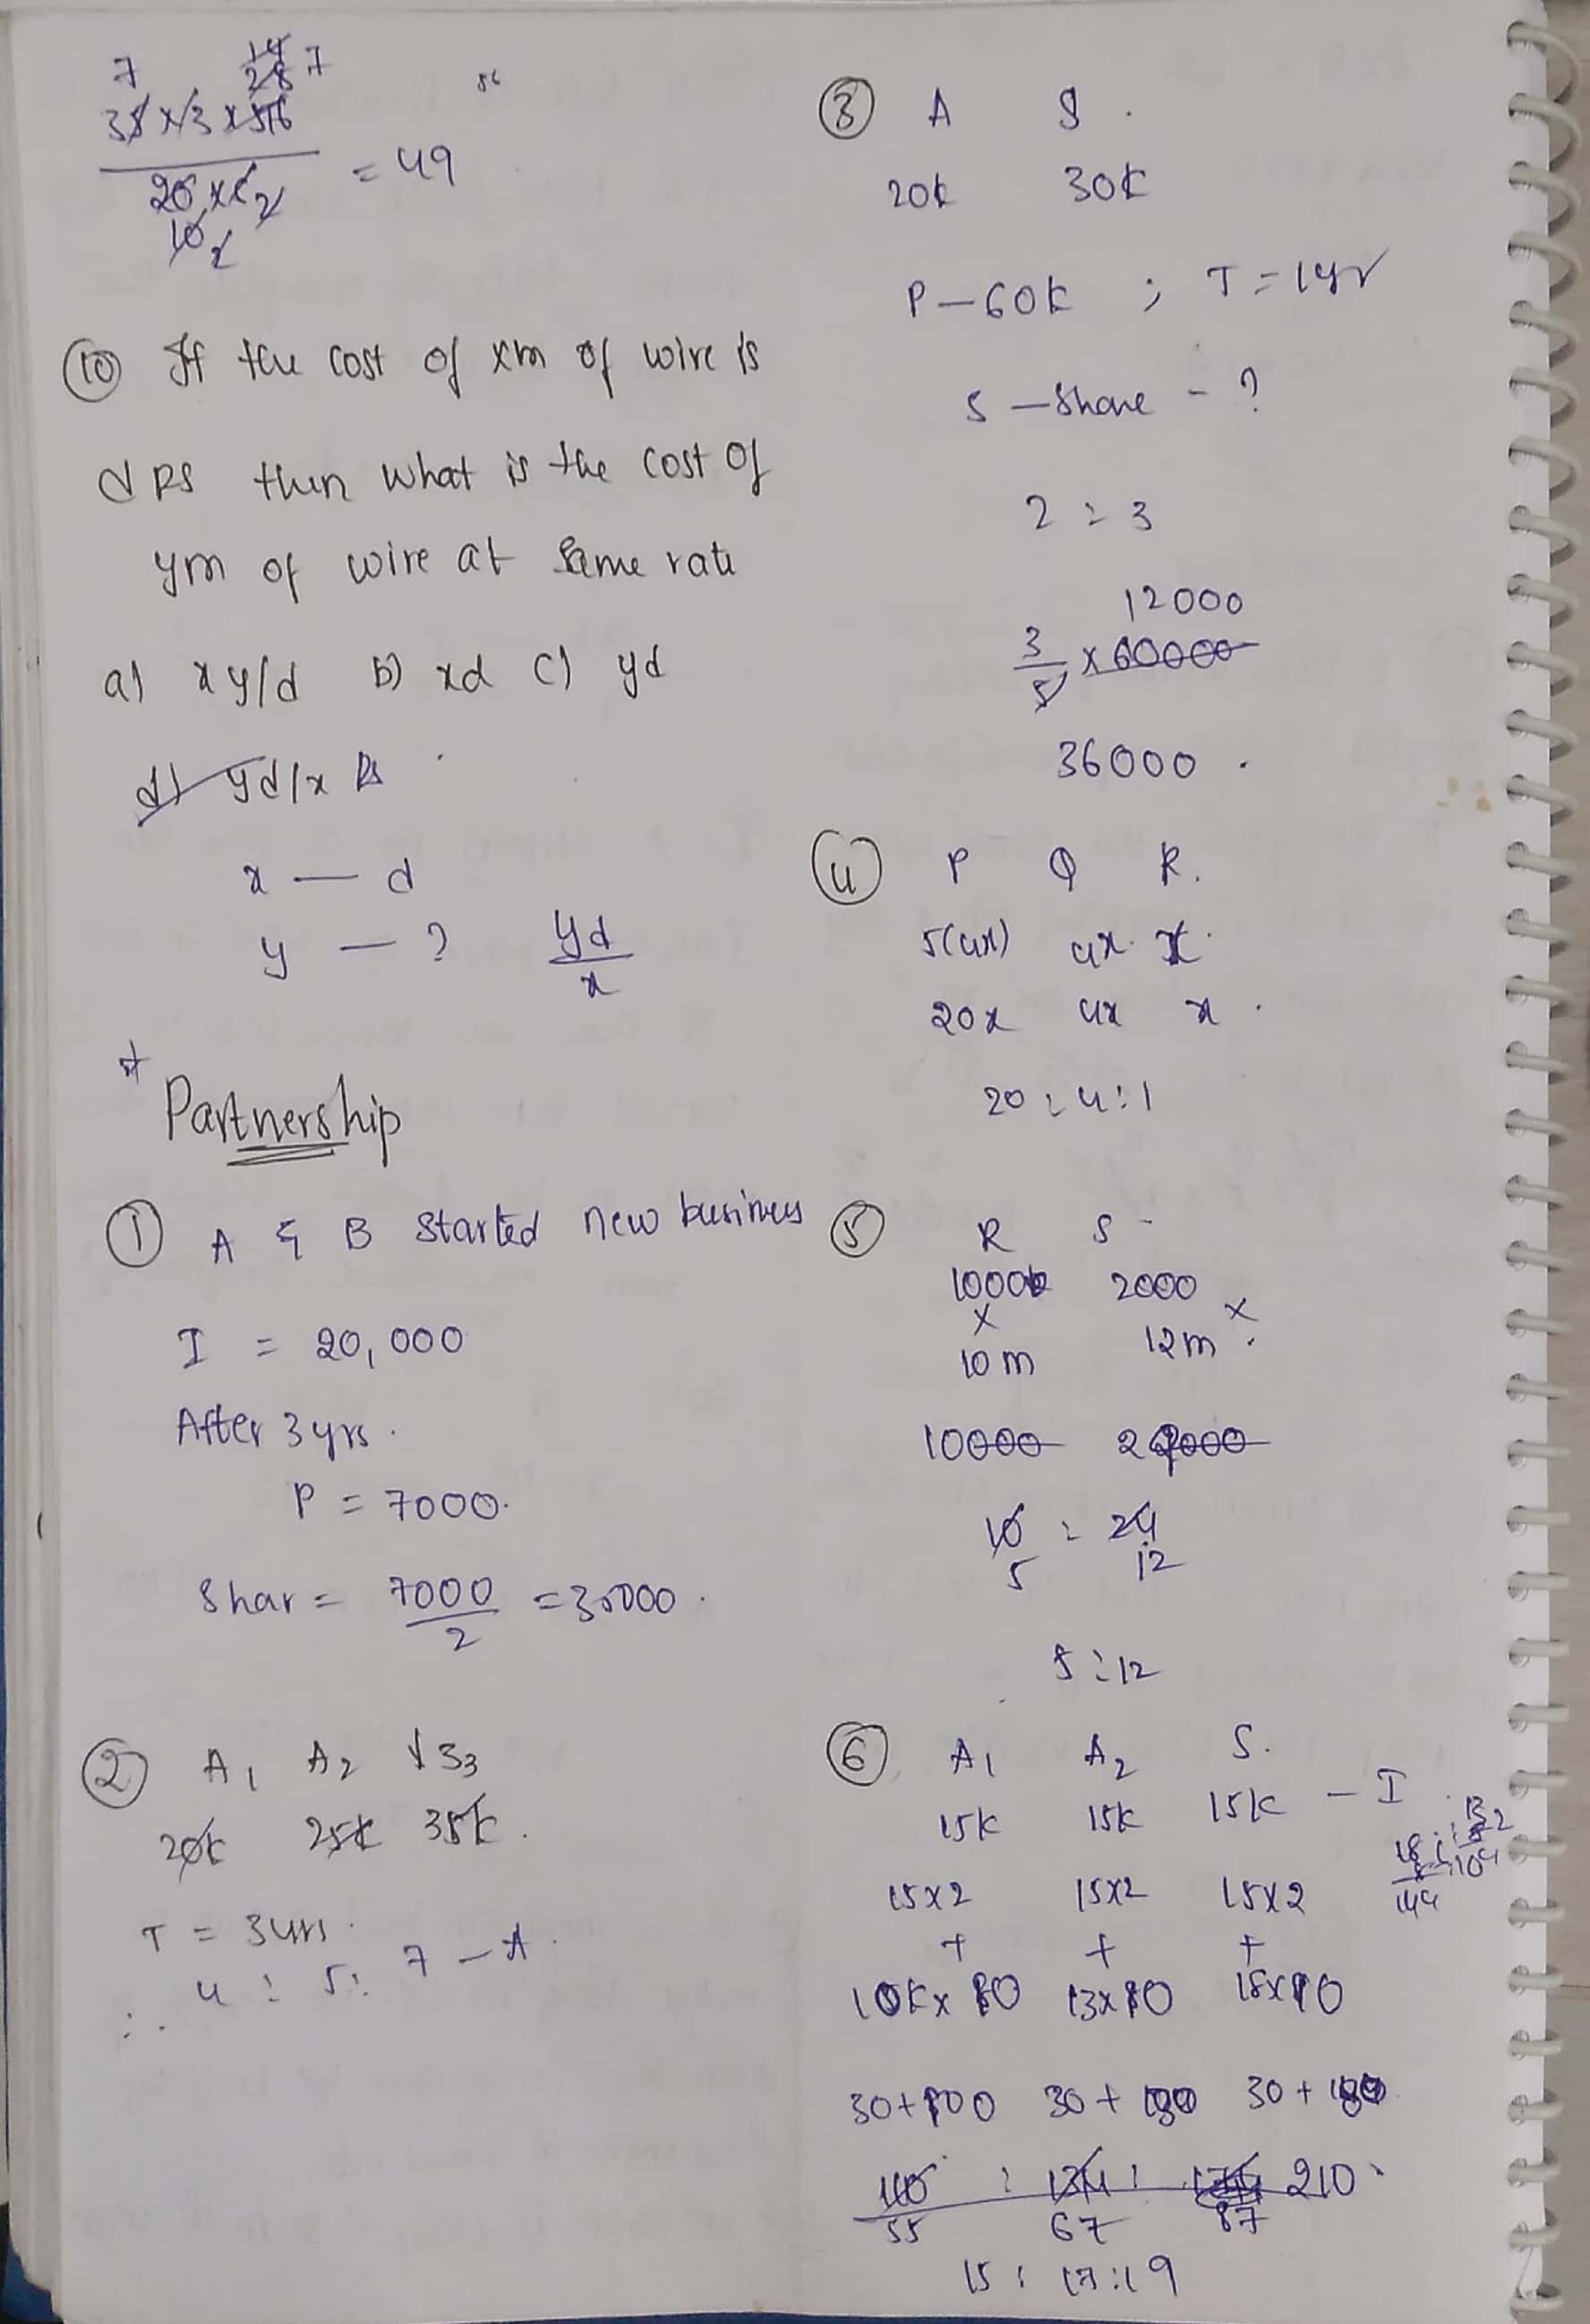 7 14
28 7
35 x 3 x 56
20 x 6 2 = 49
10 2
(10) If the cost of xm of wire is
d RS then what is the cost of
ym of wire at same rate
a) xy/d b) xd c) yd
d) yd/x Rs
x — d
y — ? yd
x
* Partnership
(1) A & B started new business
I = 20,000
After 3 yrs.
P = 7000.
Shar = 7000 =
2
(2) A1 A2
20k 25k 35k.
T = 3 yrs.
4 : 5 : 7 - A.
(3) A S.
20k 30k
P - 60k ; T = 1yr
S - Share - ?
2 : 3
12000
3 x 60000
5
36000.
(4) P Q R.
5(4x) 4x x.
20x 4x x.
20 : 4 : 1
(5) R S
1000 2000
x x
10m 12m.
10000 24000
10 : 24
5 12
5 : 12
(6) A1 A2 S.
15k 15k 15k - I
15x2 15x2 15x2
+ + +
30 + 30 + 30 +
110 : 134 : 210
55 67 87
15 : 17 : 19